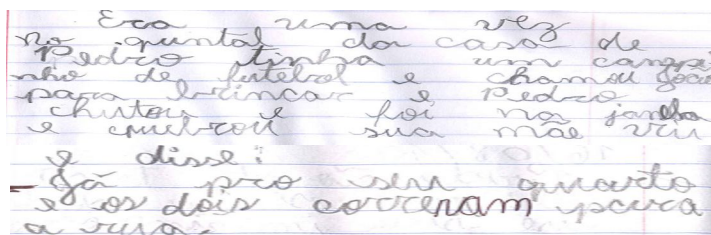 Era uma vez
no quintal da casa de
Pedro tinha um campi
nho de futebol e chamou João
para brincar e Pedro
chutou e foi na janela
e cubrou sua mãe viu
e disse:
- Já pro seu quarto
e os dois correram para
a rua.